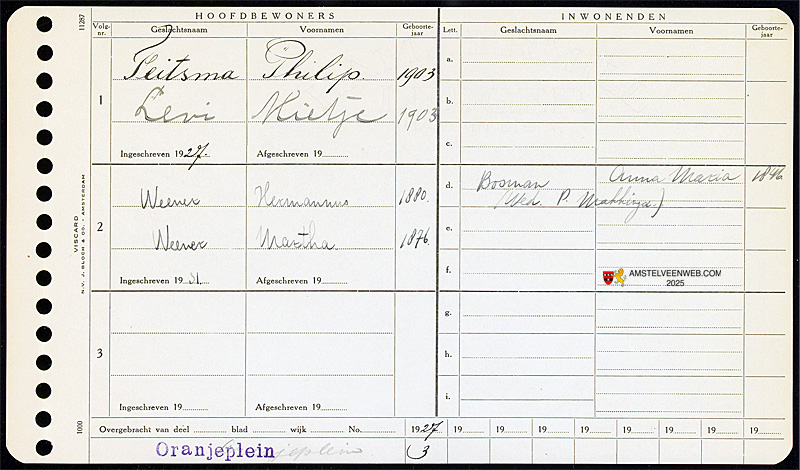 HOOFDBEWONERS INWONENDEN
11287
Volg-nr. Geslachtsnaam Voornamen Geboorte-jaar Lett. Geslachtsnaam Voornamen Geboorte-jaar
1 Feitsma Philip. 1903 a.
Levi Mietje 1903 b.
Ingeschreven 1927. Afgeschreven 19 c.
2 Weener Hermannus 1880. d. Bosman Anna Maria 1846
(Wed. P.
Weener Martha. 1876 e.
Ingeschreven 1931. Afgeschreven 19 f.
AMSTELVEENWEB.COM
2025
3 g.
h.
Ingeschreven 19 Afgeschreven 19 i.
VISCARD
N.V. J. BLOCH & CO. / AMSTERDAM
1000
Overgebracht van deel blad wijk No. 1927 19 19 19 19 19 19 19 19
Oranjeplein 3